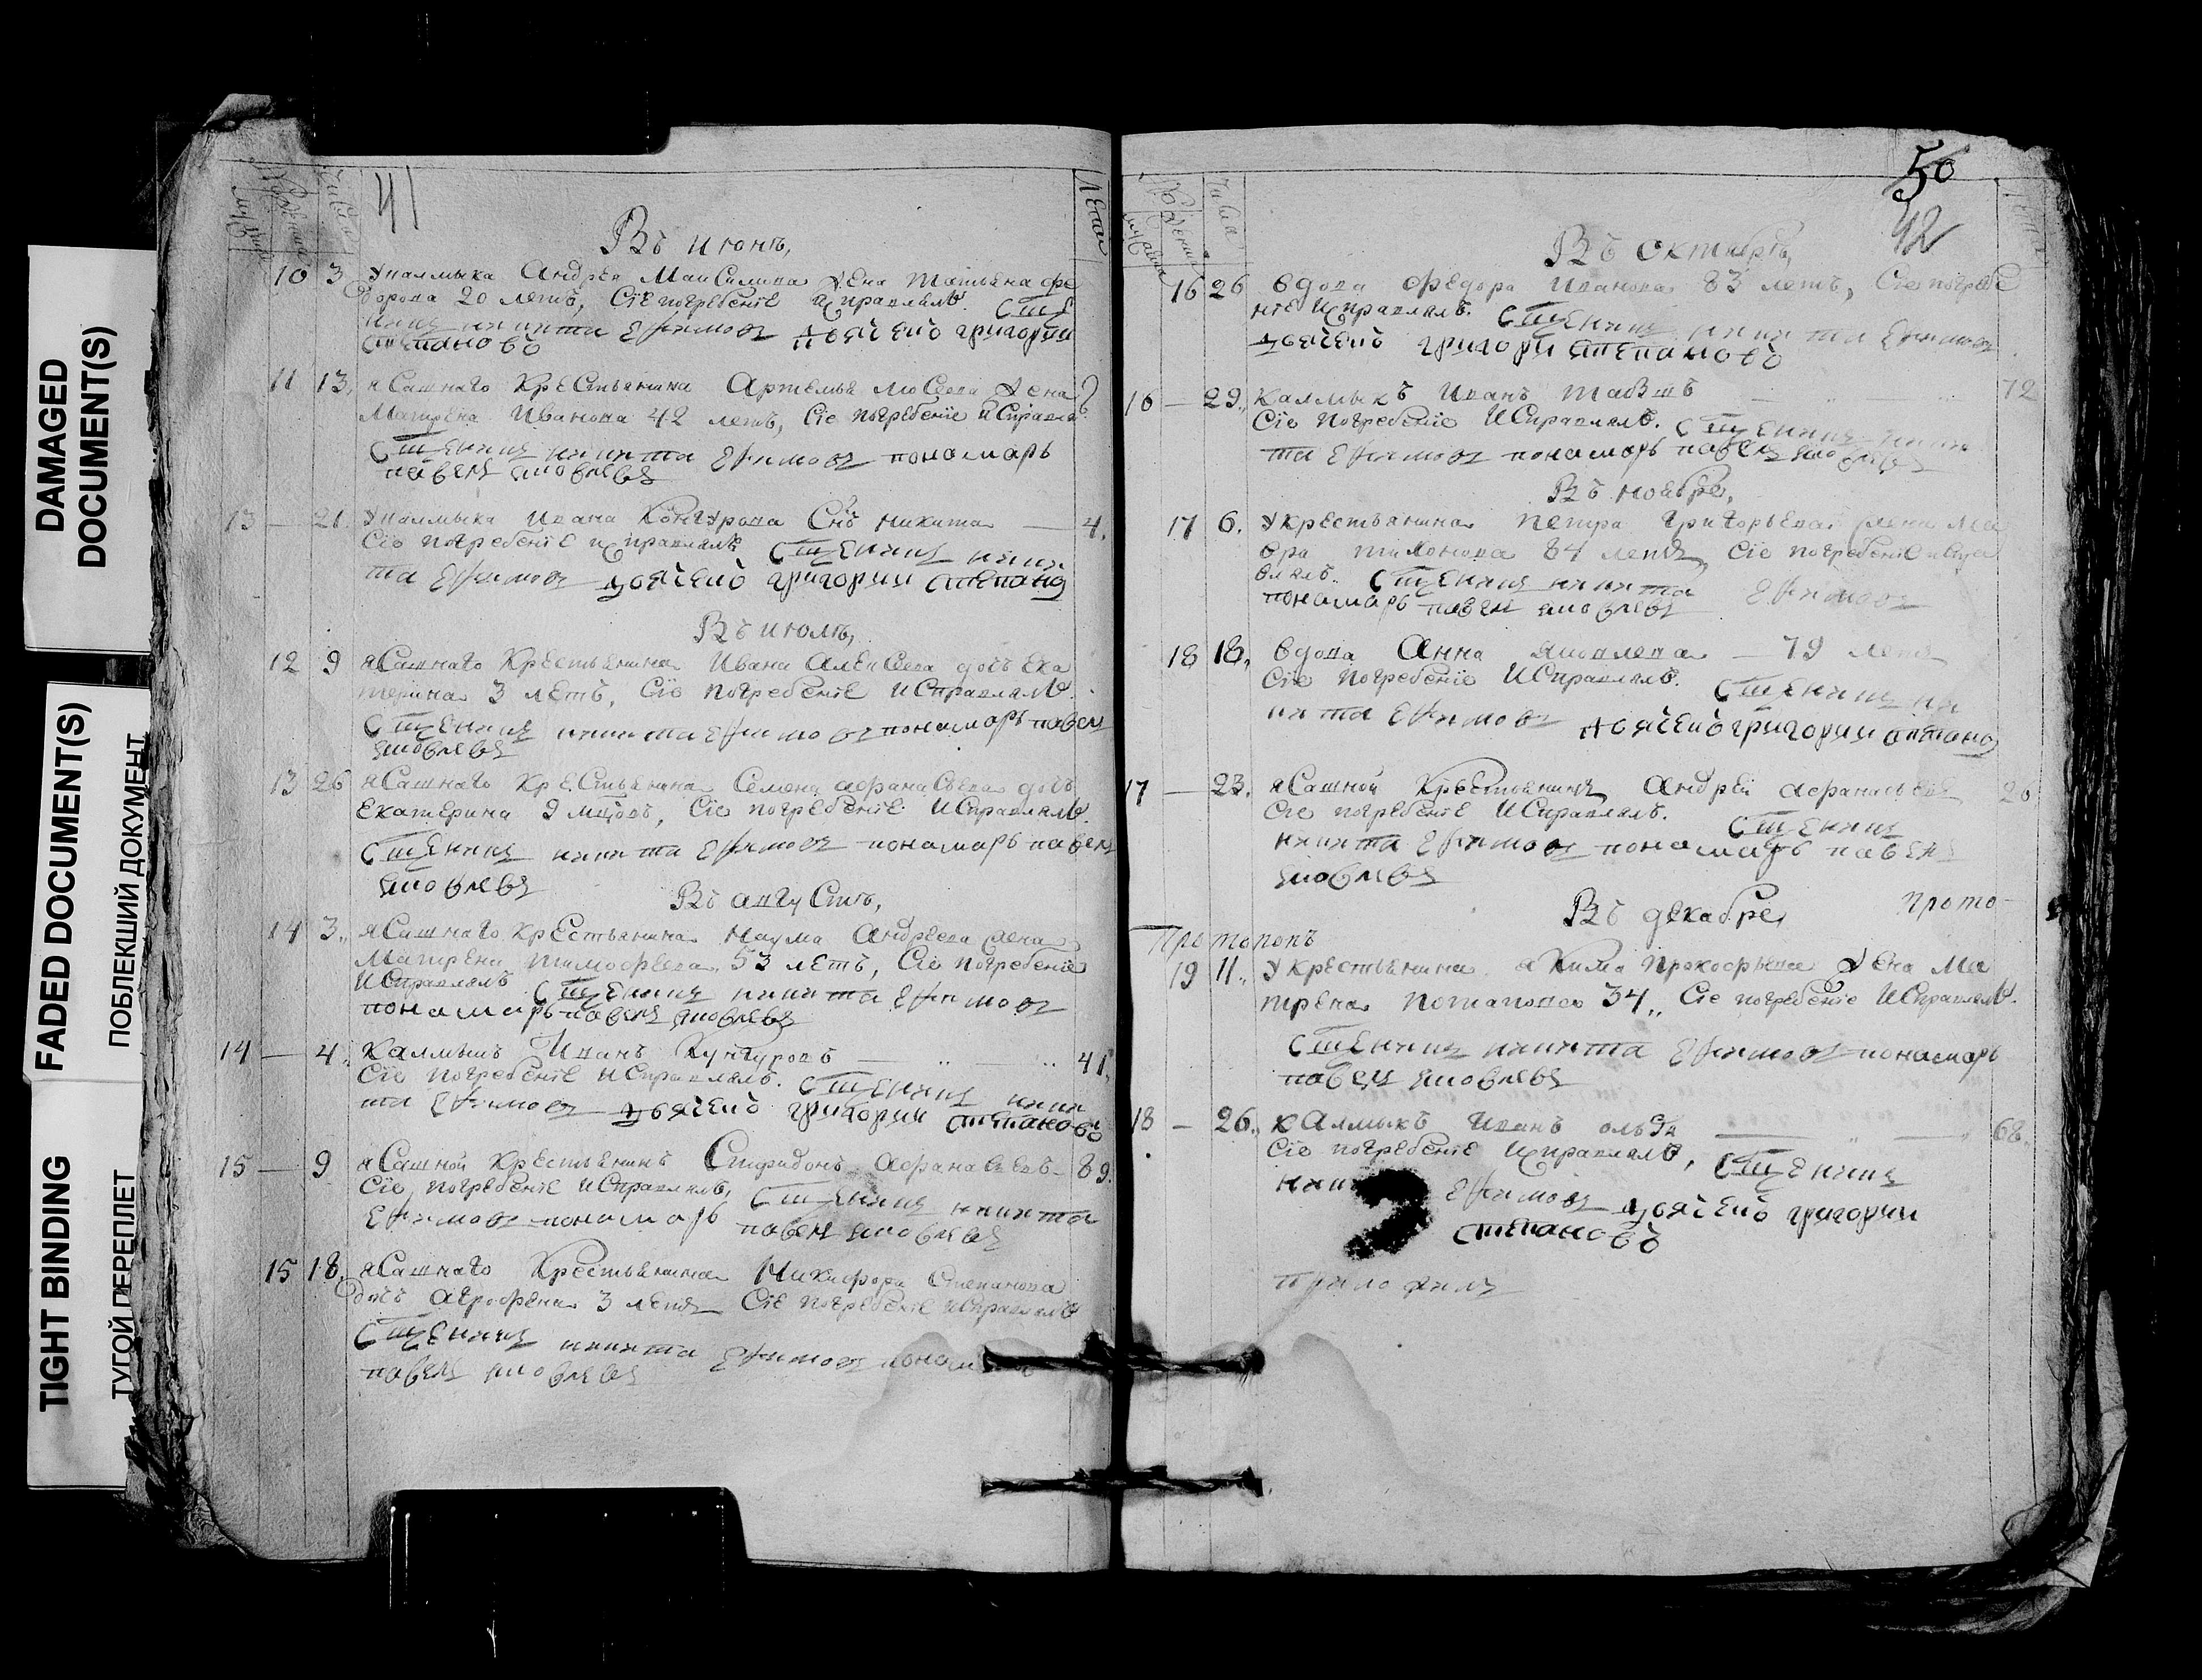 DAMAGED
DOCUMENT(S)
FADED DOCUMENT(S)
ПОБЛЕКШИЙ ДОКУМЕНТ
TIGHT BINDING
ТУГОЙ ПЕРЕПЛЕТ
41
Числа
Лета
Въ июнѣ,
10 3 Укалмыка Андрея Максимова жена татьяна фе
дорова 20 летъ, Сїе погребенїе исправлялъ. Сще
нникъ никита Ефимовъ дьячекъ григории
степановъ
11 13, ясашнаго Крестьянина Артемья мосеева жена
Матрена Иванова 42 летъ, Сїе погребенїе исправля
Сщенникъ никита Ефимовъ пономарь
павелъ яковлевъ
13 — 21. Укалмыка Ивана Конгурова Снъ никита — 4.
Сїе погребенїе исправлялъ Сщенникъ ники
та Ефимовъ дьячекъ григории степано
Въ июлѣ,
12 9 ясашнаго Крестьянина Ивана Алексеева дочь ека
терина 3 летъ, Сїе погребенїе исправлялъ.
Сщенникъ никита Ефимовъ пономарь павелъ
яковлевъ
13 26 ясашнаго Крестьянина Семена афанасьева дочь
екатерина 9 мцовъ, Сїе погребенїе исправлялъ.
Сщенникъ никита Ефимовъ пономарь павелъ
яковлевъ
Въ августѣ,
14 3. ясашнаго крестьянина Наума Андреева жена
Матрена тимофеева 53 летъ, Сїе погребенїе
исправлялъ Сщенникъ никита Ефимовъ
пономарь павелъ яковлевъ
14 — 4. калмыкъ Иванъ Кунгуровъ — 41,
Сїе погребенїе исправлялъ. Сщенникъ ники
та Ефимовъ дьячекъ григории степановъ
15 — 9 ясашной крестьянинъ Спиридонъ афанасьевъ — 89.
Сїе погребенїе исправлялъ, Сщенникъ никита
Ефимовъ пономарь павелъ яковлевъ
15 18, ясашнаго Крестьянина Никифора Степанова
дочь агрофена 3 летъ Сїе погребенїе исправлялъ
Сщенникъ никита Ефимовъ
павелъ яковлевъ
50
42
Числа
Въ октябрѣ,
16 26 вдова федора Иванова 83 летъ, Сїе погребе
нїе исправлялъ. Сщенникъ никита Ефимовъ
дьячекъ григори степановъ
16 — 29. Калмыкъ Иванъ — 72
Сїе погребенїе исправлялъ. Сщенникъ ники
та Ефимовъ пономарь павелъ яковлевъ
Въ ноябре,
17 6. Укрестьянина петра григорьева жена Ма
вра тихонова 84 летъ, Сїе погребенїе испра
влялъ. Сщенникъ никита Ефимовъ
пономарь павелъ яковлевъ
18 18, вдова Анна яковлева — 79 летъ
Сїе погребенїе исправлялъ. Сщенникъ ни
кита Ефимовъ дьячекъ григории степано
17 — 23. ясашной Крестьянинъ Андрей афанасьевъ 20
Сїе погребенїе исправлялъ. Сщенникъ
никита Ефимовъ пономарь павелъ
яковлевъ
Въ декабре, прото-
Протопопъ
19 11. Укрестьянина акима Прокофьева жена Ма
трена потапова 34„ Сїе погребенїе исправлялъ.
Сщенникъ никита Ефимовъ пономарь
павелъ яковлевъ
18 — 26. калмыкъ Иванъ — 68.
Сїе погребенїе исправлялъ, Сщенникъ
Ефимовъ дьячекъ григории
степановъ
приложилъ